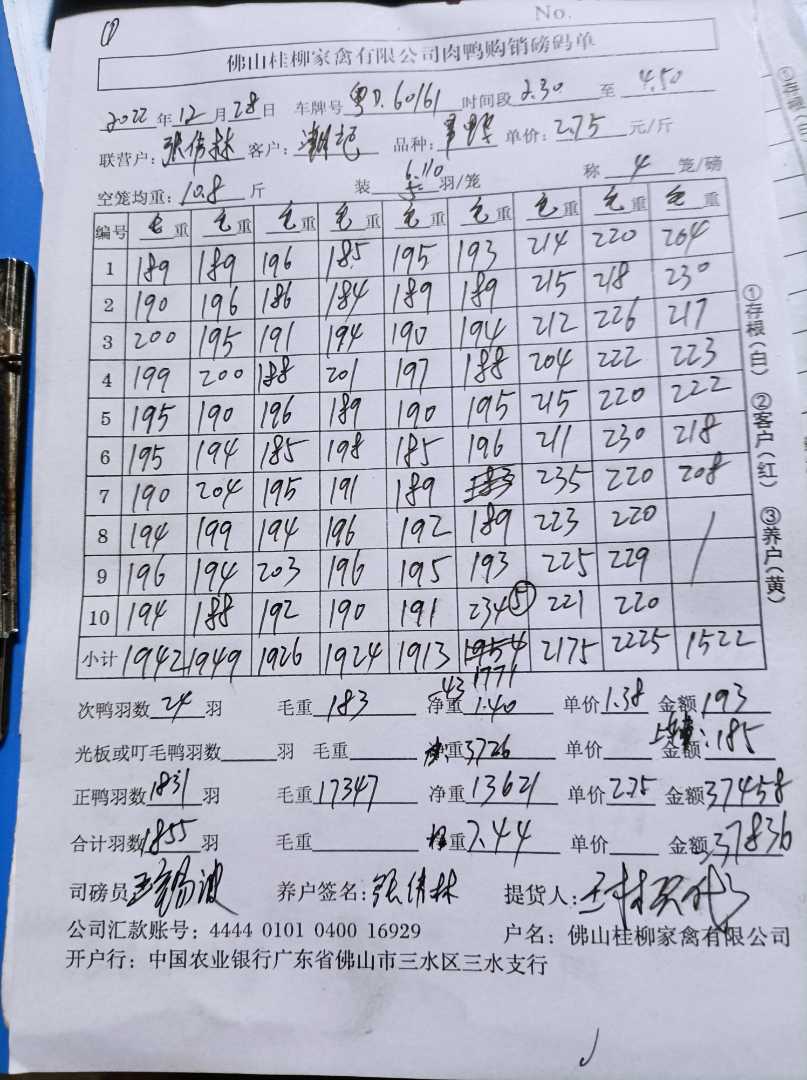 ①
No.
佛山桂柳家禽有限公司肉鸭购销磅码单
2022年12月28日 车牌号 粤D.60161 时间段 2.30 至 4.50
联营户: 张伟林 客户: 品种: 单价: 2.75 元/斤
空笼均重: 10.8 斤 装 6.110 羽/笼 称 4 笼/磅
编号 毛重 毛重 毛重 毛重 毛重 毛重 毛重 毛重 毛重
1 189 189 196 185 195 193 214 220 204
2 190 196 186 184 189 189 215 218 230
3 200 195 191 194 190 194 212 226 217
4 199 200 188 201 197 188 204 222 223
5 195 190 196 189 190 195 215 220 222
6 195 194 185 198 185 196 211 230 218
7 190 204 195 191 189 183 235 220 208
8 194 199 194 196 192 189 223 220
9 196 194 203 196 195 193 225 229
10 194 188 192 190 191 234⑤ 221 220
小计 1942 1949 1926 1924 1913 1954 2175 2225 1522
1771
次鸭羽数 24 羽 毛重 183 -43 净重 1.40 单价 1.38 金额 193
光板或叮毛鸭羽数 羽 毛重 净重 3726 单价 金额 :185
正鸭羽数 1831 羽 毛重 17347 净重 13621 单价 2.75 金额 37458
合计羽数 1855 羽 毛重 重 7.44 单价 金额 37836
司磅员 养户签名: 张伟林 提货人:
公司汇款账号: 4444 0101 0400 16929 户名: 佛山桂柳家禽有限公司
开户行: 中国农业银行广东省佛山市三水区三水支行
①存根(白) ②客户(红) ③养户(黄)
①存根(白